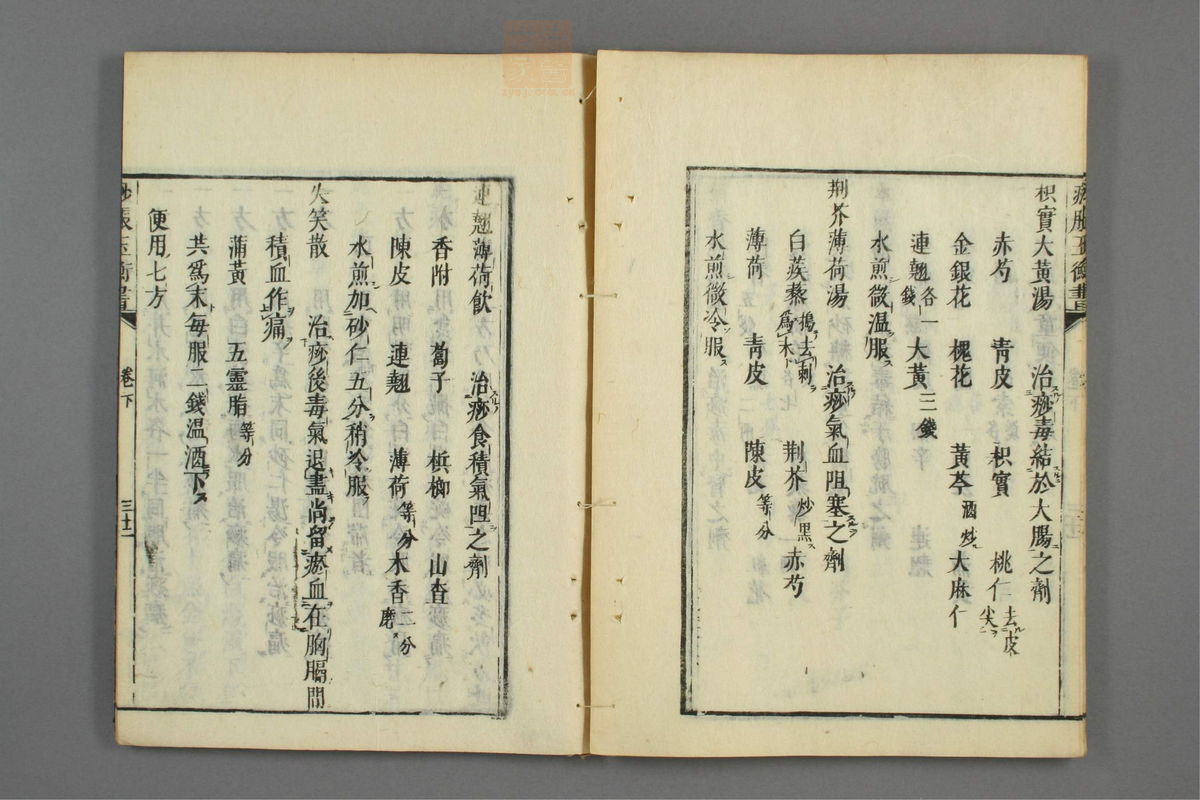 痧脹玉衡書
枳實大黃湯　治痧毒結於大腸之劑
赤芍　青皮　枳實　桃仁去皮尖
金銀花　槐花　黃芩酒炒　大麻仁
連翹各一錢　大黃三錢
水煎微温服
荆芥薄荷湯　治痧氣血阻塞之劑
白蒺藜搗去刺爲末　荆芥炒黑　赤芍
薄荷　青皮　陳皮等分
水煎微冷服
連翹薄荷飲　治痧食積氣阻之劑
香附　蔔子　梹榔　山査
陳皮　連翹　薄荷等分　木香二分磨
水煎加砂仁五分稍冷服
失笑散　治痧後毒氣退盡尚留瘀血在胸膈間
積血作痛
蒲黃　五靈脂等分
共爲末每服二錢温酒下
便用七方
痧脹玉衡書　卷下